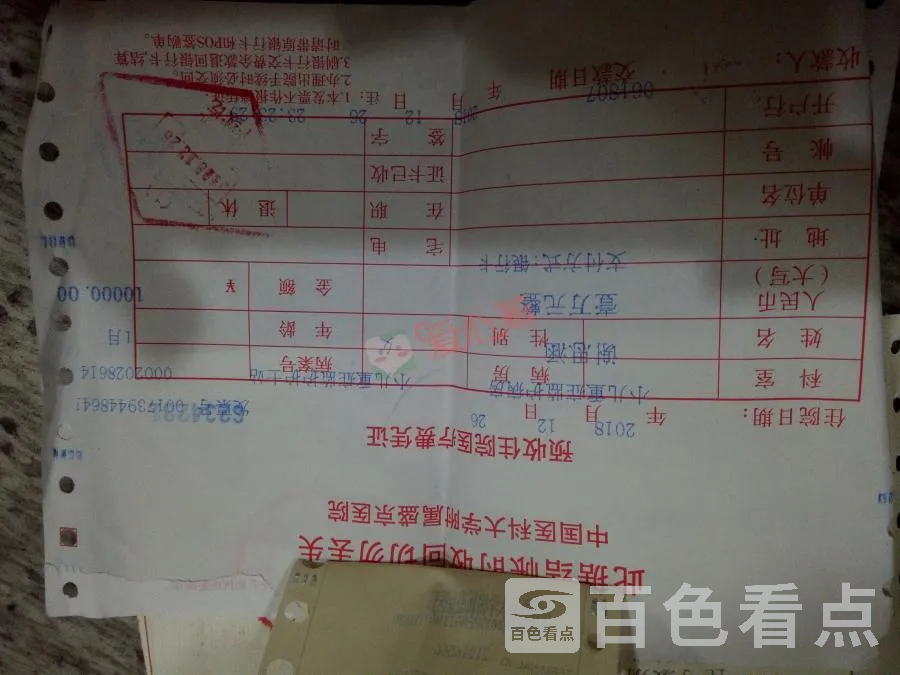 此据结帐时收回切勿丢失
中国医科大学附属盛京医院
预收住院医疗费凭证
发票号 001739448641
住院日期: 2018 年 12 月 26 日
科室 小儿重症监护病房 病房 小儿重症监护护士站 病案号 0002028614
姓名 性别 女 年龄 1月
人民币(大写) 壹万元整 金额 ¥ 10000.00
支付方式:银行卡
地址 宅电
单位名 在职 退休
帐号 证卡已收
开户行 签字
收款人: 061807 交款日期 2018 年 12 月 26 日
注:1.本发票不作报销凭证。
2.办理出院手续时必须交回。
3.刷银行卡交费余款退回银行卡,结算
时请带原银行卡和POS签购单。
爱心筹
百色看点
百色看点